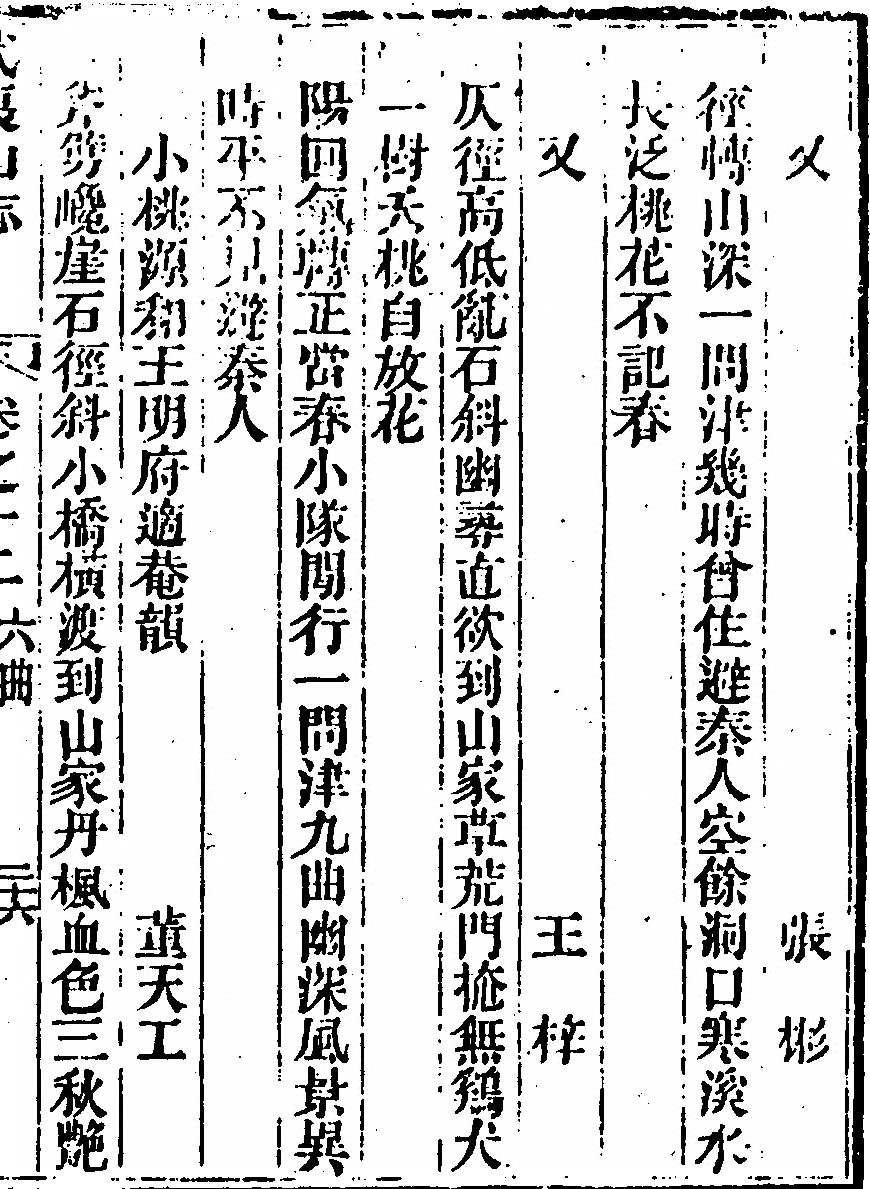 又 張 彬
徑轉山深一問津幾時曾住避秦人空餘洞口寒溪水
長泛桃花不記春
又 王 梓
仄徑高低亂石斜幽尋直欲到山家草荒門掩無雞犬
一樹夭桃自放花
陽回氣轉正當春小隊閒行一問津九曲幽深風景異
時平不見避秦人
小桃源和王明府適菴韻 董天工
岸傍巉崖石徑斜小橋橫渡到山家丹楓血色三秋艷
武夷山志 卷之十二 六曲 二六